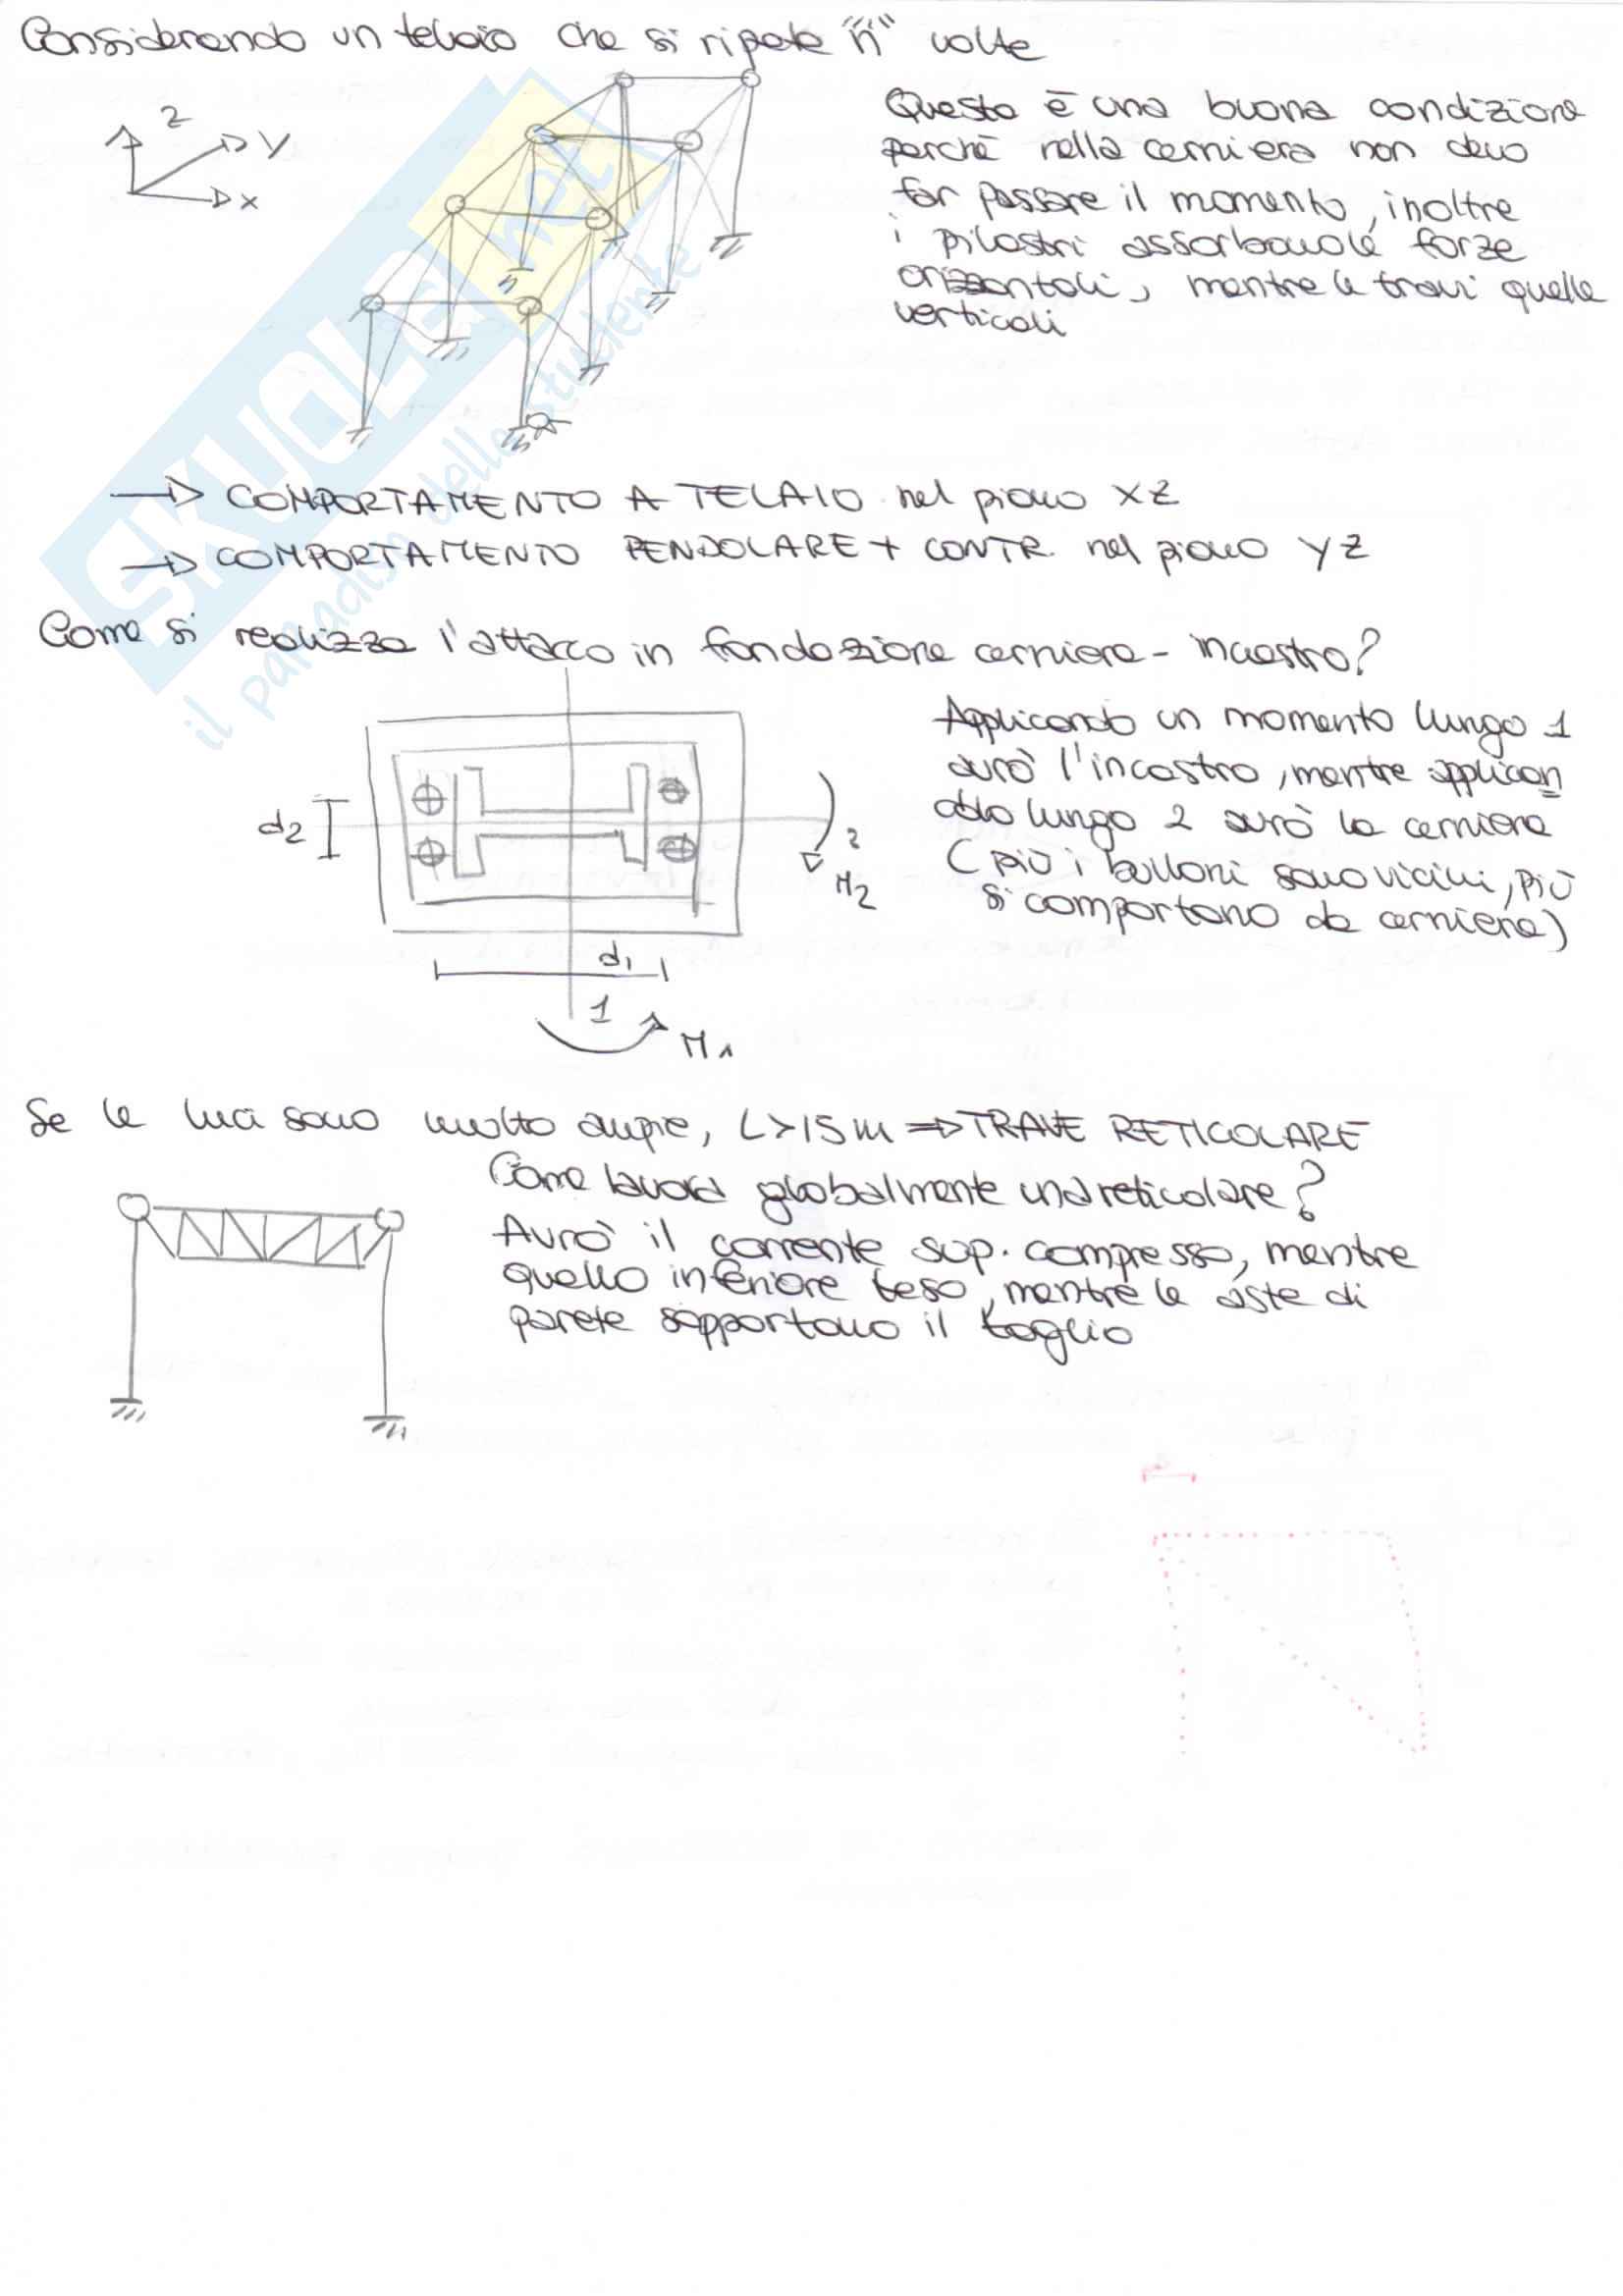 Considerando un telaio che si ripete "n" volte
z
y
x
Questa è una buona condizione
perchè nella cerniera non devo
far passare il momento, inoltre
i pilastri assorbono le forze
orizzontali, mentre le travi quelle
verticali
SKUOLA.net
il paradiso dello studente
→ COMPORTAMENTO A TELAIO nel piano XZ
→ COMPORTAMENTO PENDOLARE + CONTR. nel piano YZ
Come si realizza l'attacco in fondazione cerniera - incastro?
Applicando un momento lungo 1
avrò l'incastro, mentre applican
do lungo 2 avrò la cerniera
(più i bulloni sono vicini, più
si comportano da cerniera)
d2
2
M2
d1
1
M1
Se le luci sono molto ampie, L>15m ⇒ TRAVE RETICOLARE
Come lavora globalmente una reticolare?
Avrò il corrente sup. compresso, mentre
quello inferiore teso, mentre le aste di
parete sopportano il taglio